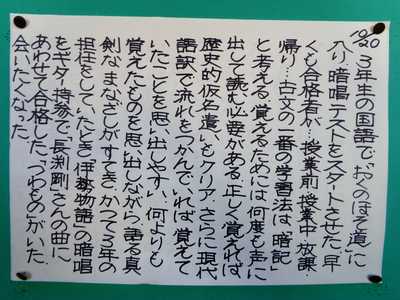 10/20
3年生の国語で「おくのほそ道」に
入り、暗唱テストをスタートさせた。早
くも合格者が…授業前、授業中、放課・
帰り…古文の一番の学習法は、「暗記」
と考える。覚えるためには、何度も声に
出して読む必要がある。正しく覚えれば、
歴史的仮名遣いもクリア。さらに、現代
語訳で流れをつかんでいれば、覚えて
いたことを思い出しやすい。何よりも
覚えたものを思い出しながら語る真
剣なまなざしがすてき。かつて3年の
担任をしていたとき、「伊勢物語」の暗唱
をギター持参で、長渕剛さんの曲に
あわせて合格した、「つわもの」がいた。
会いたくなった。